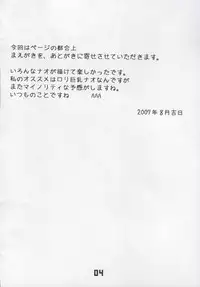 今回はページの都合上
まえがきを、あとがきに寄せさせていただきます。
いろんなナオが描けて楽しかったです。
私のオススメはロリ巨乳ナオなんですが
またマイノリティな予感がしますね。
いつものことですね ^^^
2007年8月吉日
04